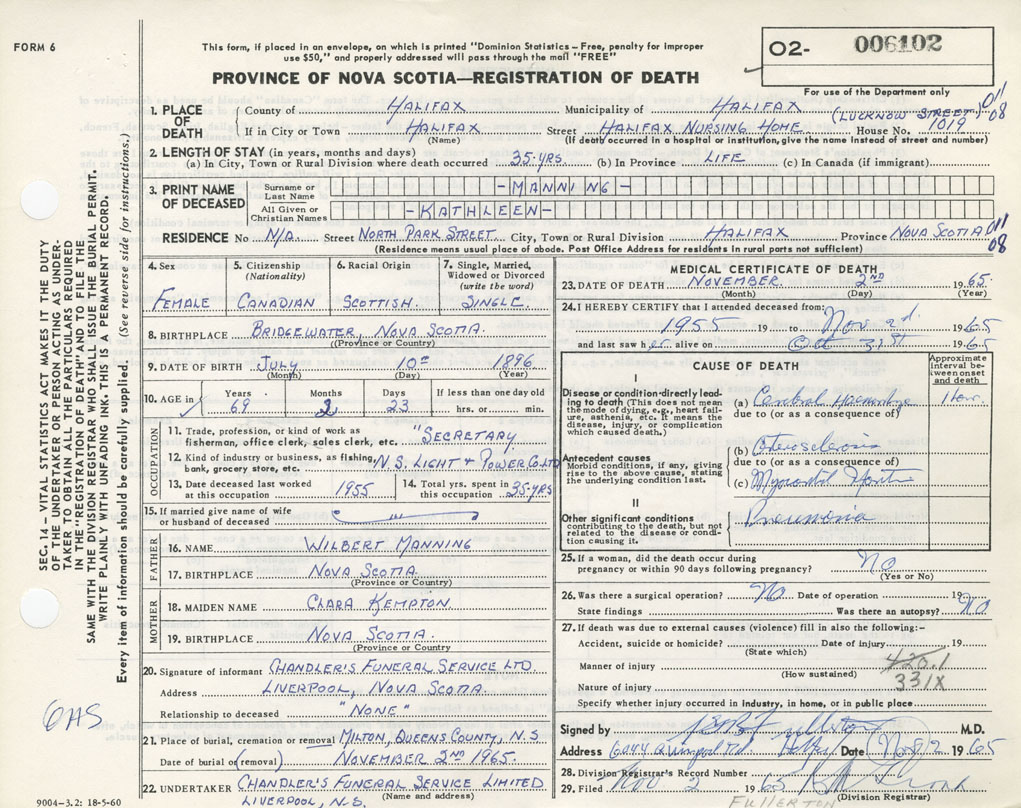 FORM 6
This form, if placed in an envelope, on which is printed "Dominion Statistics – Free, penalty for improper
use $50," and properly addressed will pass through the mail "FREE"
O2- 006102
PROVINCE OF NOVA SCOTIA—REGISTRATION OF DEATH
For use of the Department only
1. PLACE OF DEATH
County of HALIFAX Municipality of HALIFAX
(LUCKNOW STREET) 011 08
If in City or Town HALIFAX Street HALIFAX NURSING HOME House No. 1019
(Name) (If death occurred in a hospital or institution, give the name instead of street and number)
2. LENGTH OF STAY (in years, months and days)
(a) In City, Town or Rural Division where death occurred 35-YRS (b) In Province LIFE (c) In Canada (if immigrant)
3. PRINT NAME OF DECEASED
Surname or Last Name -MANNING-
All Given or Christian Names -KATHLEEN-
RESIDENCE No N/A Street NORTH PARK STREET City, Town or Rural Division HALIFAX Province NOVA SCOTIA 011 08
(Residence means usual place of abode. Post Office Address for residents in rural parts not sufficient)
4. Sex FEMALE
5. Citizenship (Nationality) CANADIAN
6. Racial Origin SCOTTISH.
7. Single, Married, Widowed or Divorced (write the word) SINGLE.
8. BIRTHPLACE BRIDGEWATER, NOVA SCOTIA.
(Province or Country)
9. DATE OF BIRTH JULY 10TH 1896
(Month) (Day) (Year)
10. AGE in Years 69 Months 2 Days 23 If less than one day old hrs. or min.
OCCUPATION
11. Trade, profession, or kind of work as fisherman, office clerk, sales clerk, etc. "SECRETARY
12. Kind of industry or business, as fishing, bank, grocery store, etc. "N.S. LIGHT & POWER CO. LTD
13. Date deceased last worked at this occupation 1955
14. Total yrs. spent in this occupation 35-YRS
15. If married give name of wife or husband of deceased
FATHER
16. NAME WILBERT MANNING
17. BIRTHPLACE NOVA SCOTIA.
(Province or Country)
MOTHER
18. MAIDEN NAME CLARA KEMPTON.
19. BIRTHPLACE NOVA SCOTIA.
(Province or Country)
20. Signature of informant CHANDLER'S FUNERAL SERVICE LTD.
Address LIVERPOOL, NOVA SCOTIA.
Relationship to deceased "NONE"
21. Place of burial, cremation or removal MILTON, QUEENS COUNTY, N.S.
Date of burial or (removal) NOVEMBER 2ND 1965.
22. UNDERTAKER CHANDLER'S FUNERAL SERVICE LIMITED
(Name and address)
LIVERPOOL, N.S.
9004-3.2: 18-5-60
MEDICAL CERTIFICATE OF DEATH
23. DATE OF DEATH NOVEMBER 2ND 1965.
(Month) (Day) (Year)
24. I HEREBY CERTIFY that I attended deceased from:
1955 19 to Nov 2d. 1965
and last saw her alive on Oct 31st 1965
CAUSE OF DEATH
Approximate Interval between onset and death
I
Disease or condition directly leading to death (This does not mean the mode of dying, e.g., heart failure, asthenia, etc. It means the disease, injury, or complication which caused death.)
(a) Cerebral Haemorrhage
due to (or as a consequence of)
Antecedent causes
Morbid conditions, if any, giving rise to the above cause, stating the underlying condition last.
(b)
due to (or as a consequence of)
(c)
II
Other significant conditions contributing to the death, but not related to the disease or condition causing it.
Pneumonia
25. If a woman, did the death occur during pregnancy or within 90 days following pregnancy? No
(Yes or No)
26. Was there a surgical operation? No Date of operation 19
State findings Was there an autopsy? No
27. If death was due to external causes (violence) fill in also the following:–
Accident, suicide or homicide? Date of injury 19
(State which)
Manner of injury 420.1
(How sustained)
331X
Nature of injury
Specify whether injury occurred in industry, in home, or in public place
Signed by M.D.
Address Date Nov 2 1965
28. Division Registrar's Record Number
29. Filed Nov 2 1965
(Division Registrar)
FULLERTON
SEC. 14 – VITAL STATISTICS ACT MAKES IT THE DUTY
OF THE UNDERTAKER OR PERSON ACTING AS UNDER-
TAKER TO OBTAIN ALL THE PARTICULARS REQUIRED
IN THE "REGISTRATION OF DEATH" AND TO FILE THE
SAME WITH THE DIVISION REGISTRAR WHO SHALL ISSUE THE BURIAL PERMIT.
WRITE PLAINLY WITH UNFADING INK. THIS IS A PERMANENT RECORD.
Every item of information should be carefully supplied. (See reverse side for instructions.)